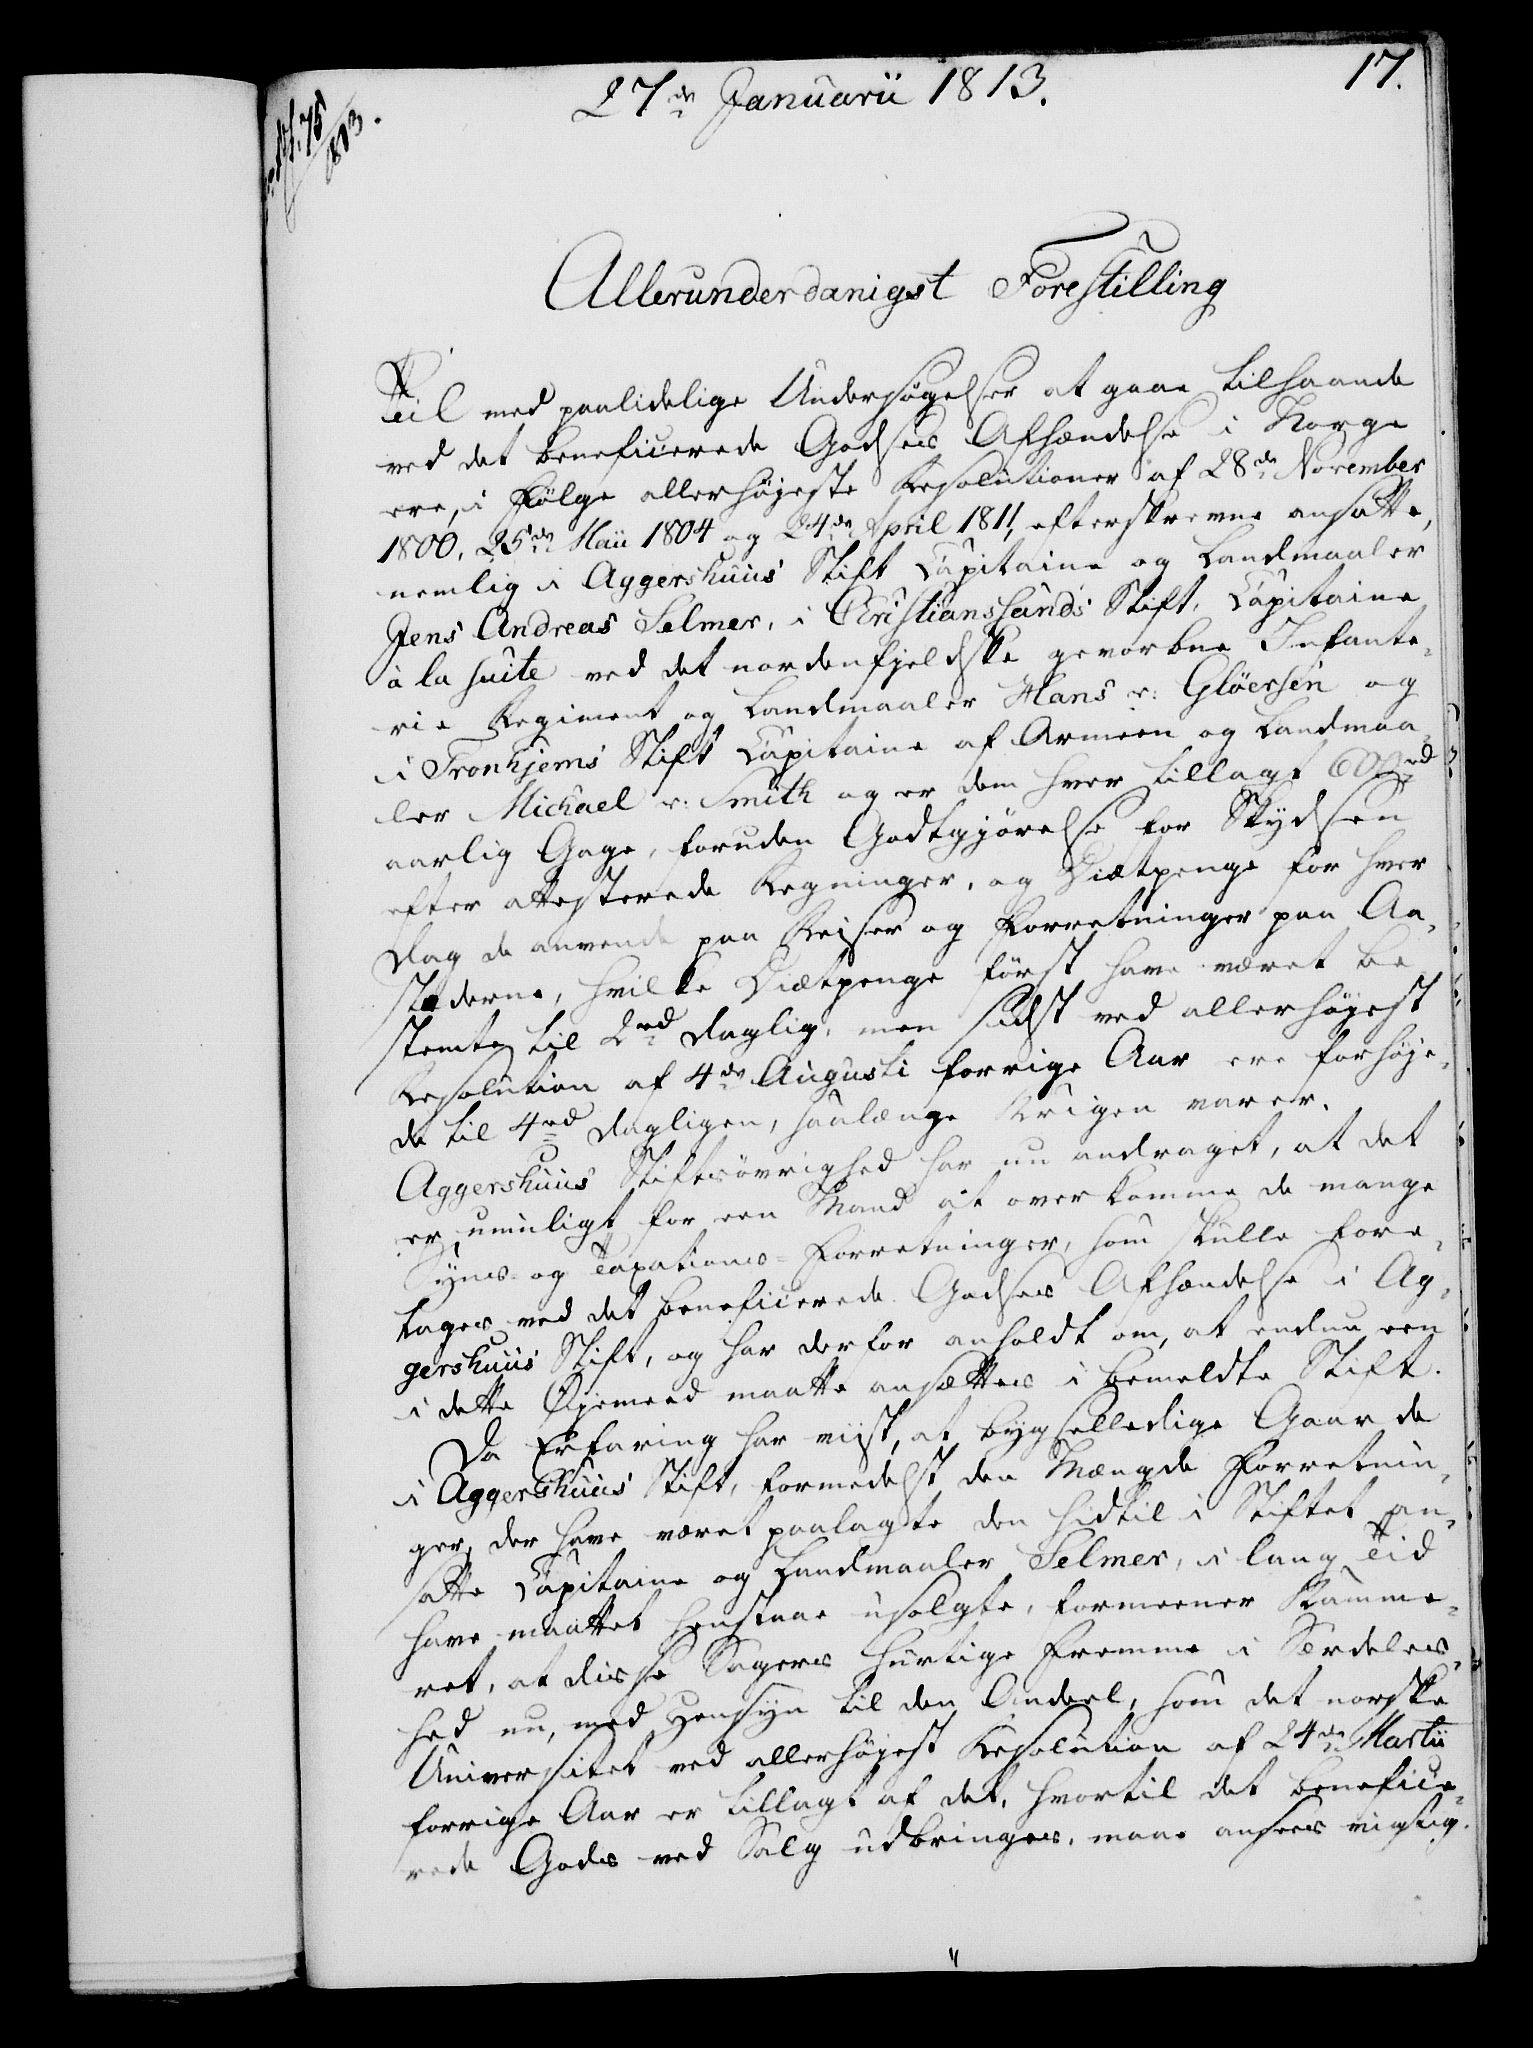 17.
27de Januarii 1813.
75
1813.
Allerunderdanigst Forestilling
Til med paalidelige Undersøgelser at gaae tilhaande
ved det beneficerede Godses Afhændelse i Norge
ere, i Følge allerhøjeste Resolutioner af 28de November
1800, 25de Maii 1804 og 24de April 1811, efterskrevne ansatte,
nemlig i Aggershuus Stift Capitaine og Landmaaler
Jens Andreas Selmer, i Christianssands Stift, Capitaine
à la suite ved det nordenfjeldske gevorbne Infante-
rie Regiment og Landmaaler Hans v: Gløersen og
i Tronhjems Stift Capitaine af Armeen og Landmaa-
ler Michael v: Smith og er dem hver tillagt 600 rd
aarlig Gage, foruden Godtgjørelse for Skydsen
efter attesterede Regninger, og Diætpenge for hver
Dag de anvende paa Reiser og Forretninger paa Aa-
stæderne, hvilke Diætpenge først have været be
stemte til 2 rd daglig, men sidst ved allerhøjest
Resolution af 4de Augusti forrige Aar ere forhøje-
de til 4 rd dagligen, saalænge Krigen varer.
Aggershuus Stiftsøvrighed har nu andraget, at det
er umuligt for een Mand at overkomme de mange
Syns- og Taxations-Forretninger, som skulle fore-
tages ved det beneficerede Godses Afhændelse i Ag-
gershuus Stift, og har derfor anholdt om, at endnu een
i dette Øjemeed maatte ansættes i bemeldte Stift.
Da Erfaring har viist, at bygselledige Gaarde
i Aggershuus Stift, formedelst den Mængde Forretnin-
ger, der have været paalagte den hidtil i Stiftet an-
satte Capitaine og Landmaaler Selmer, i lang Tid
have maattet henstaae usolgte, formeener Kamme-
ret, at disse Sagers hurtige Fremme i Særdeles-
hed nu, med Hensyn til den Andeel, som det norske
Universitet ved allerhøjest Resolution af 24de Martii
forrige Aar er tillagt af det, hvortil det benefice-
rede Gods ved Salg udbringes, maae ansees vigtig.